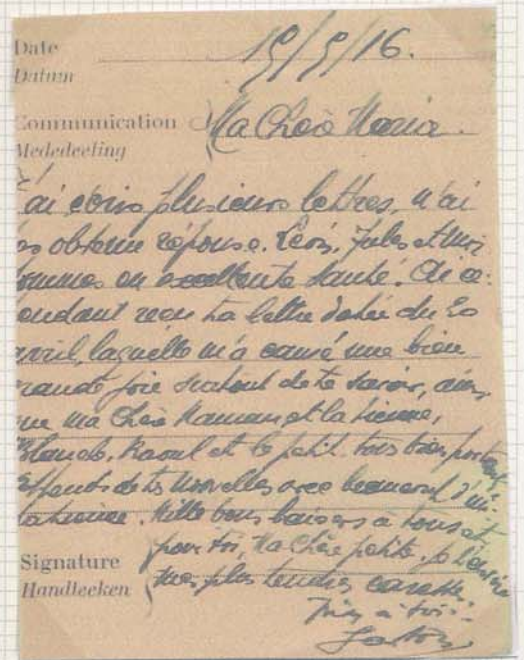 Date
Datum
19/9/16.
Communication
Mededeeling
Ma Chère Maria.
J'ai écris plusieurs lettres, n'ai
pas obtenu réponse. Léon, Jules et moi
sommes en excellente santé. Ai ce-
pendant reçu ta lettre datée du 20
avril, laquelle m'a causé une bien
grande joie surtout de te savoir, ainsi
que ma Chère Maman et la tienne,
Raoul et le petit tous bien portants
Attends de tes nouvelles avec beaucoup d'im-
patience. Mille bons baisers à tous et
pour toi, Ma Chère petite,
Signature
Handteeken
mes plus tendres
à toi